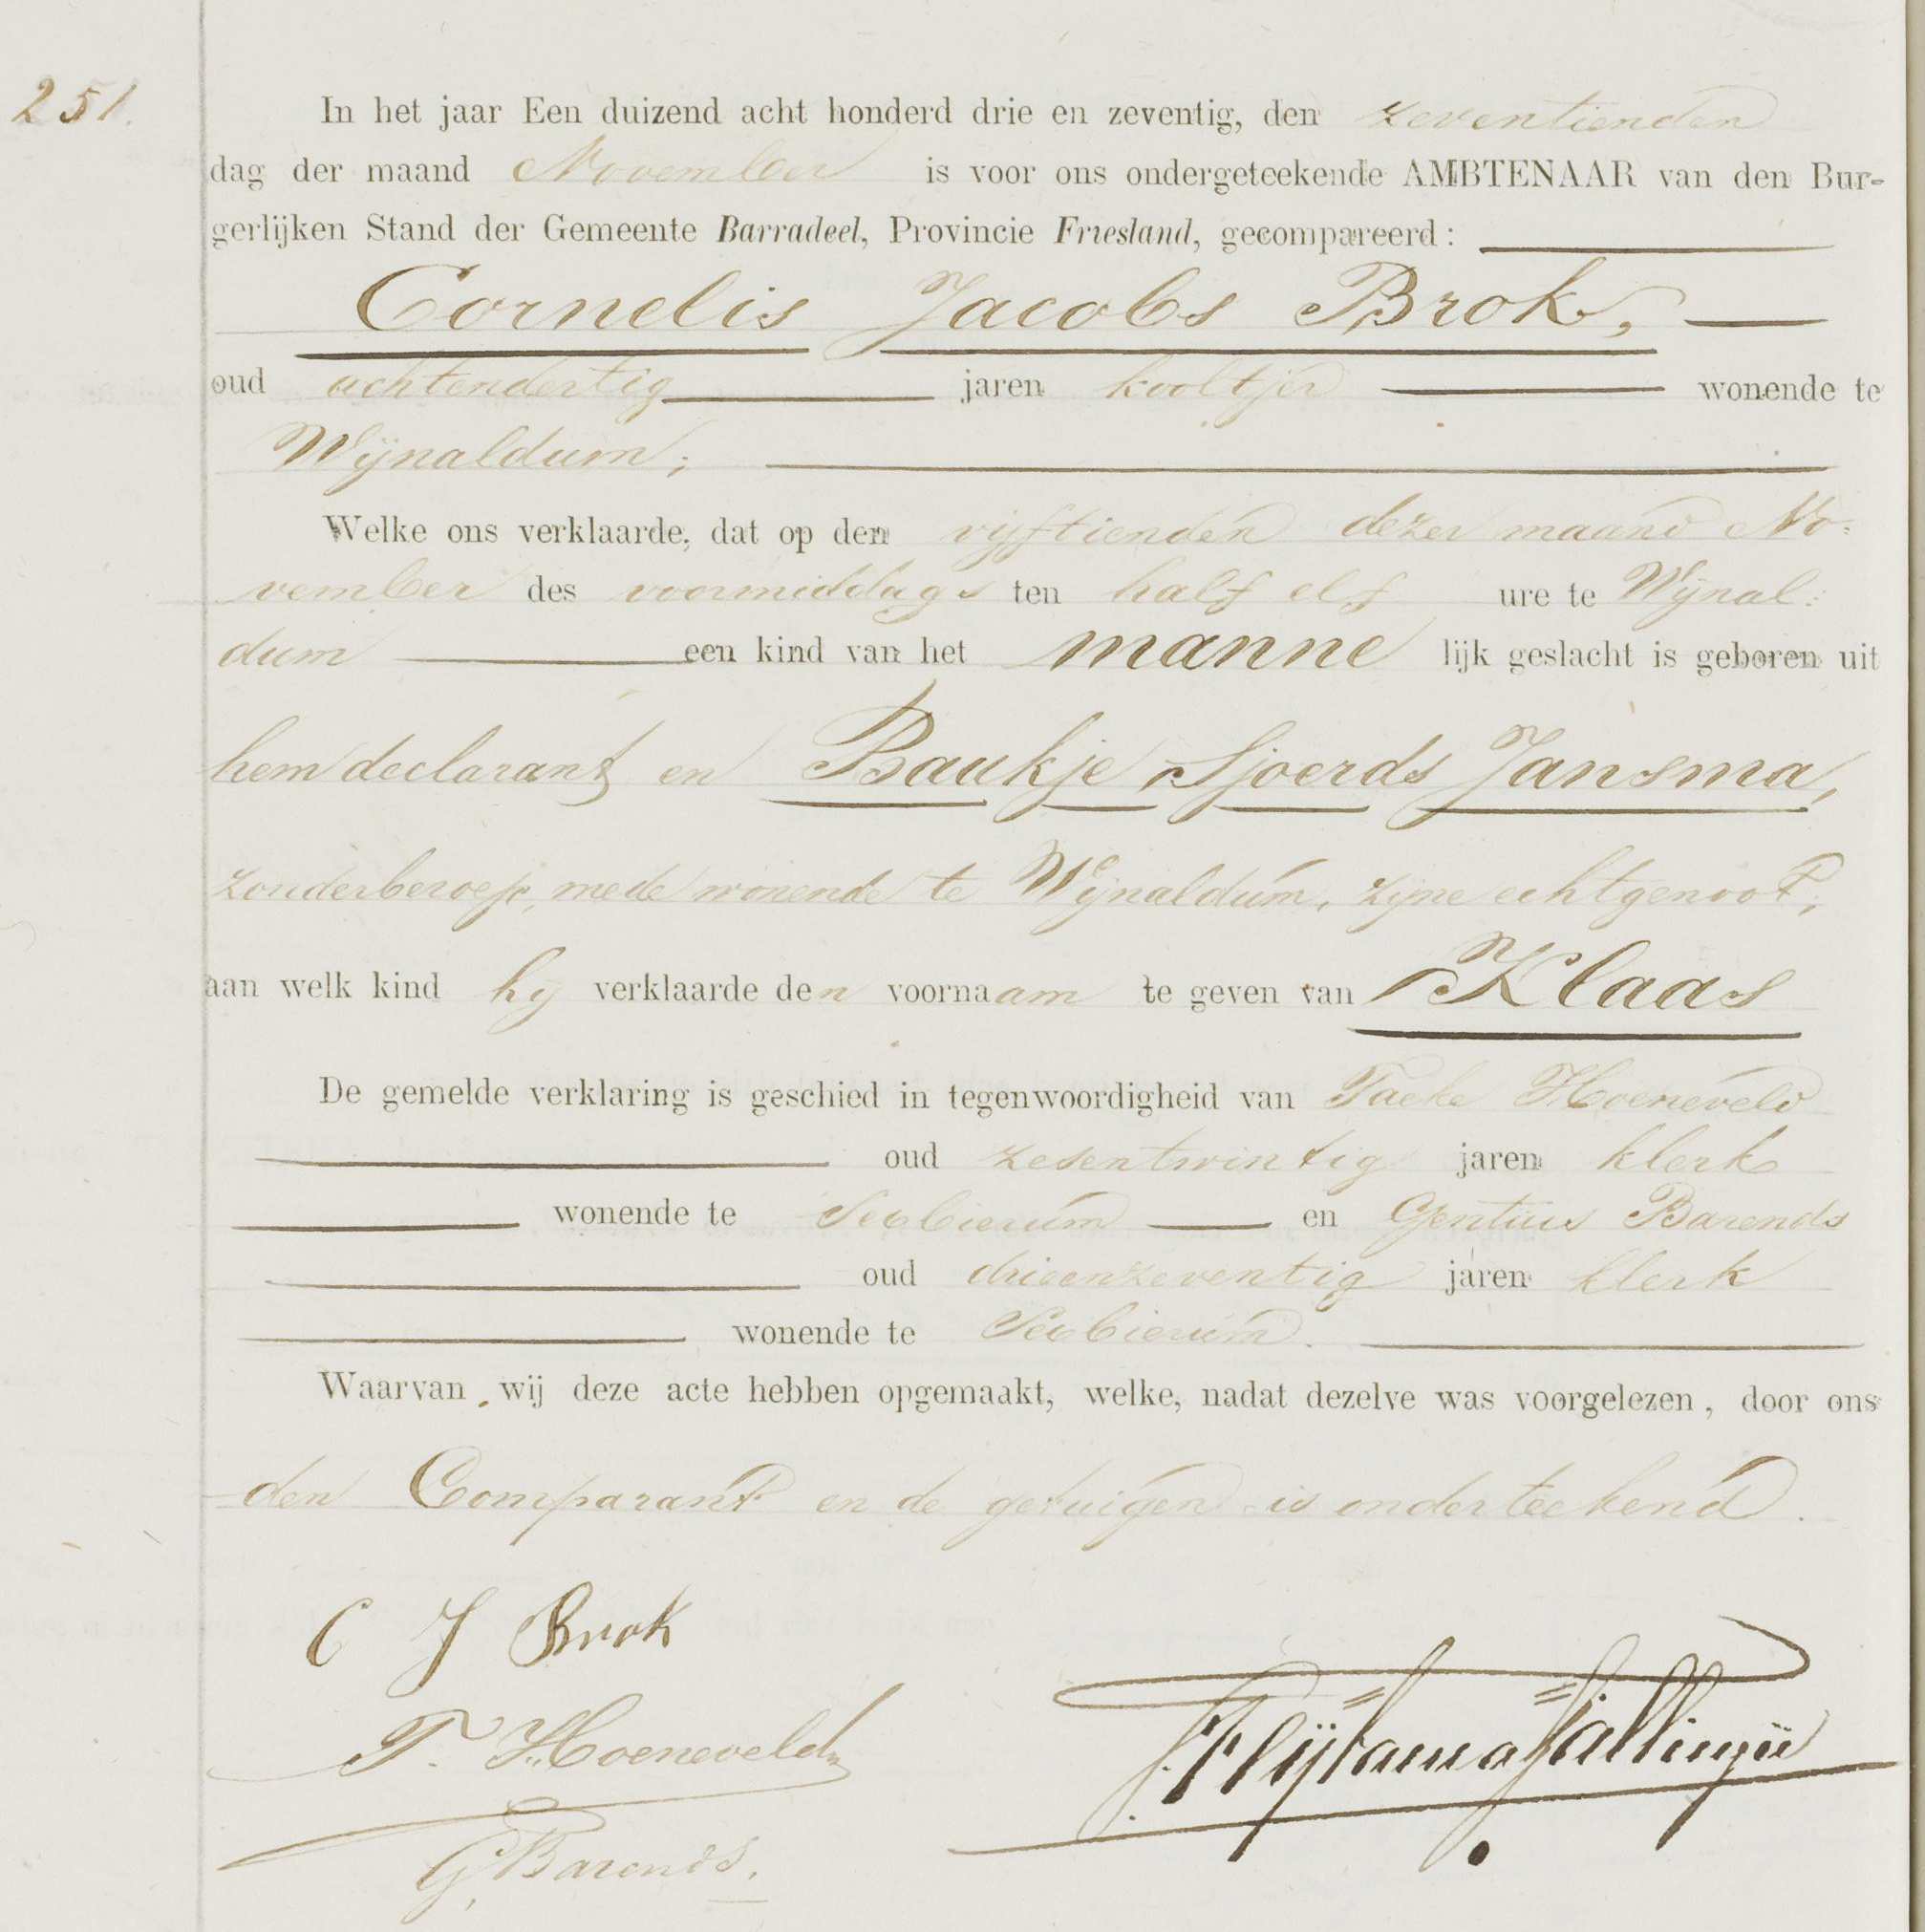 251.
In het jaar Een duizend acht honderd drie en zeventig, den zeventienden
dag der maand November is voor ons ondergeteekende AMBTENAAR van den Bur-
gerlijken Stand der Gemeente Barradeel, Provincie Friesland, gecompareerd:
Cornelis Jacobs Brok,
oud achtendertig jaren kooltjer wonende te
Wijnaldum;
Welke ons verklaarde, dat op den vijftienden dezer maand No=
vember des voormiddags ten half elf ure te Wijnal=
dum een kind van het manne lijk geslacht is geboren uit
hem declarant en Baukje Sjoerds Jansma,
zonder beroep, mede wonende te Wijnaldum, zijne echtgenoot;
aan welk kind hij verklaarde den voornaam te geven van Klaas
De gemelde verklaring is geschied in tegenwoordigheid van Taeke Hoeneveld
oud zesentwintig jaren klerk
wonende te Sexbierum en Gentius Barends
oud drieenzeventig jaren klerk
wonende te Sexbierum.
Waarvan wij deze acte hebben opgemaakt, welke, nadat dezelve was voorgelezen, door ons
den Comparant en de getuigen is onderteekend.
C J Brok
T. Hoeneveld
G. Barends.